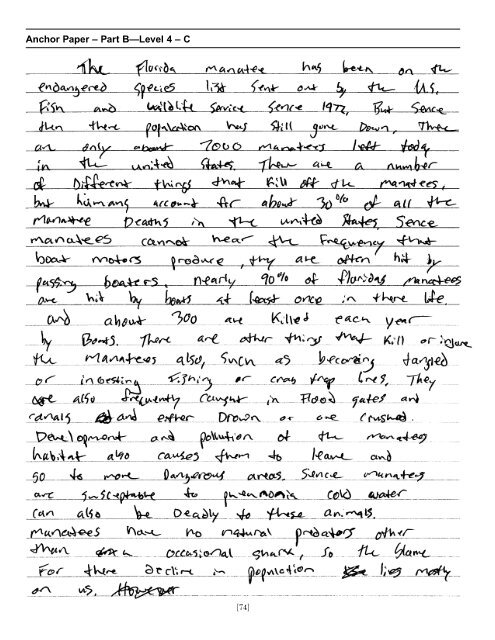 Anchor Paper – Part B—Level 4 – C
The Florida manatee has been on the
endangered species list sent out by the U.S.
Fish and wildlife service sence 1972, But sence
then there population has still gone Down, There
are only about 7000 manatees left today
in the united States. There are a number
of Different things that kill off the manatees,
but humans account for about 30% of all the
manatee Deaths in the united states. Sence
manatees cannot hear the frequency that
boat motors produce, they are often hit by
passing boaters. nearly 90% of floridas manatees
are hit by boats at least once in there life
and about 300 are killed each year
by Boats. There are other things that kill or injure
the manatees also, such as becoming tangled
or ingesting fishing or crab trap lines. They
are also frequently caught in flood gates and
canals and either Drown or are crushed.
Development and pollution of the manatees
habitat also causes them to leave and
go to more Dangerous areas. Sence manatees
are susceptable to pnenmonia cold water
can also be Deadly to these animals.
manatees have no natural predators other
than occasional shark, so the blame
For there decline in population lies mostly
on us. However
[74]